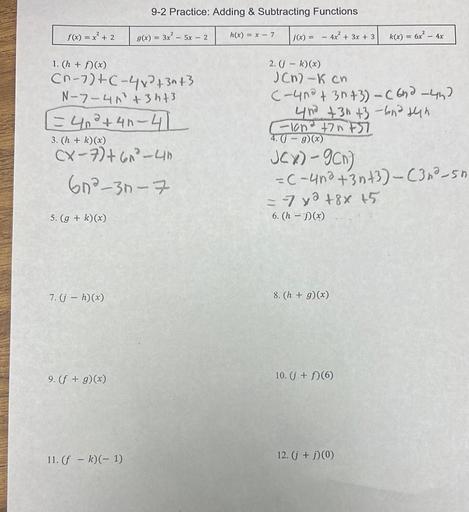 9-2 Practice: Adding & Subtracting Functions
f(x) = x² + 2
g(x) = 3x² − 5x − 2
h(x) = x − 7
j(x) = − 4x² + 3x + 3
k(x) = 6x² − 4x
1. (h + f)(x)
(n-7)+(-4x²+3n+3
N-7-4n²+3n+3
= 4n²+4n-4
2. (j − k)(x)
J(n)-K(n
(-4n²+3n+3)-(6n²-4n)
4n² +3n+3 -6n²+4n
-10n²+7n+3
3. (h + k)(x)
(x-7)+6n²-4n
6n²-3n-7
4. (j − g)(x)
J(x)-g(n)
=(-4n²+3n+3)-(3n²-5n
= -7x²+8x+5
5. (g + k)(x)
6. (h − j)(x)
7. (j − h)(x)
8. (h + g)(x)
9. (f + g)(x)
10. (j + f)(6)
11. (f − k)(− 1)
12. (j + j)(0)